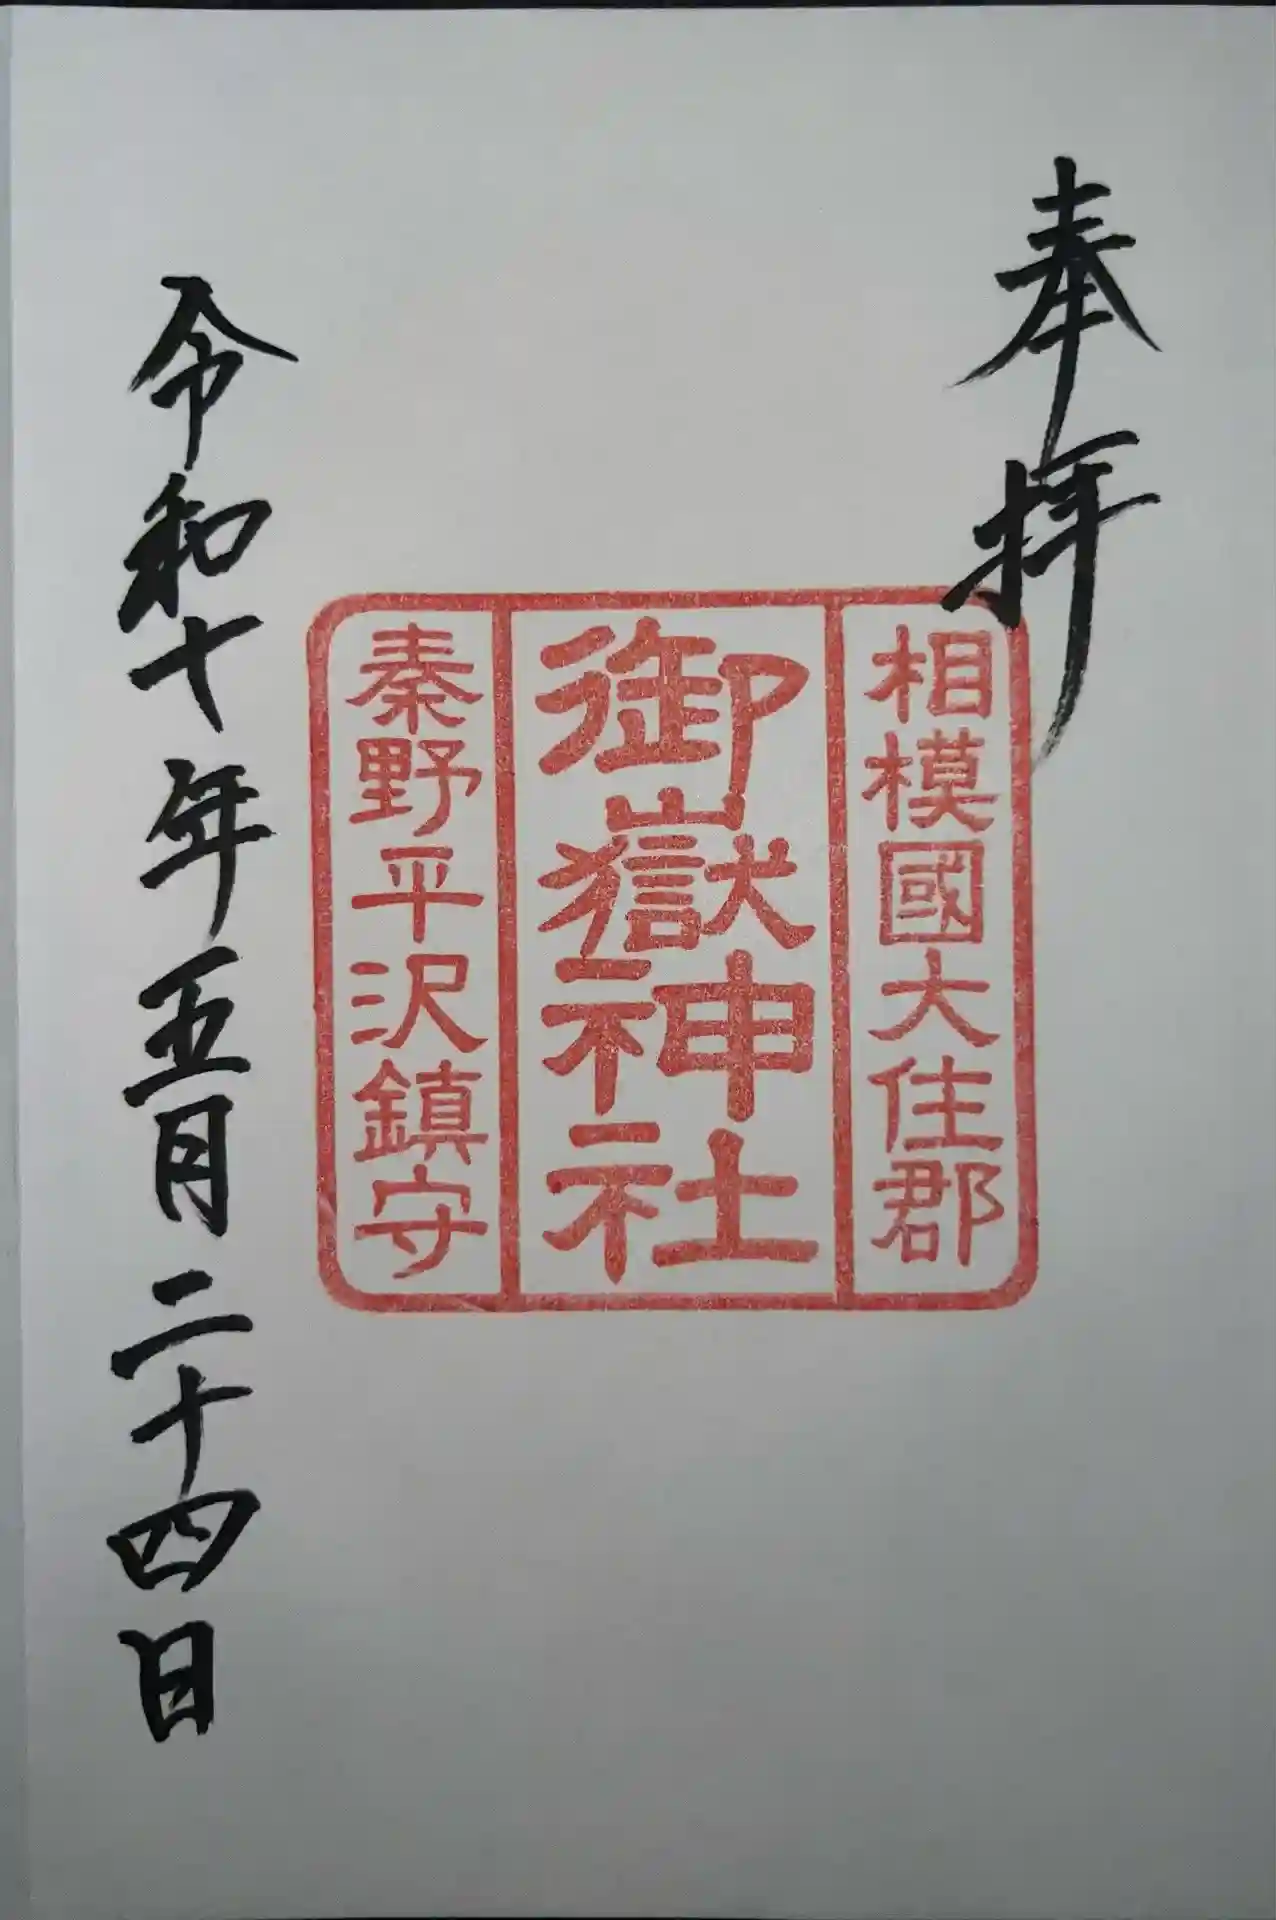 奉拝
相模國大住郡
御嶽神社
秦野平沢鎮守
令和七年五月二十四日